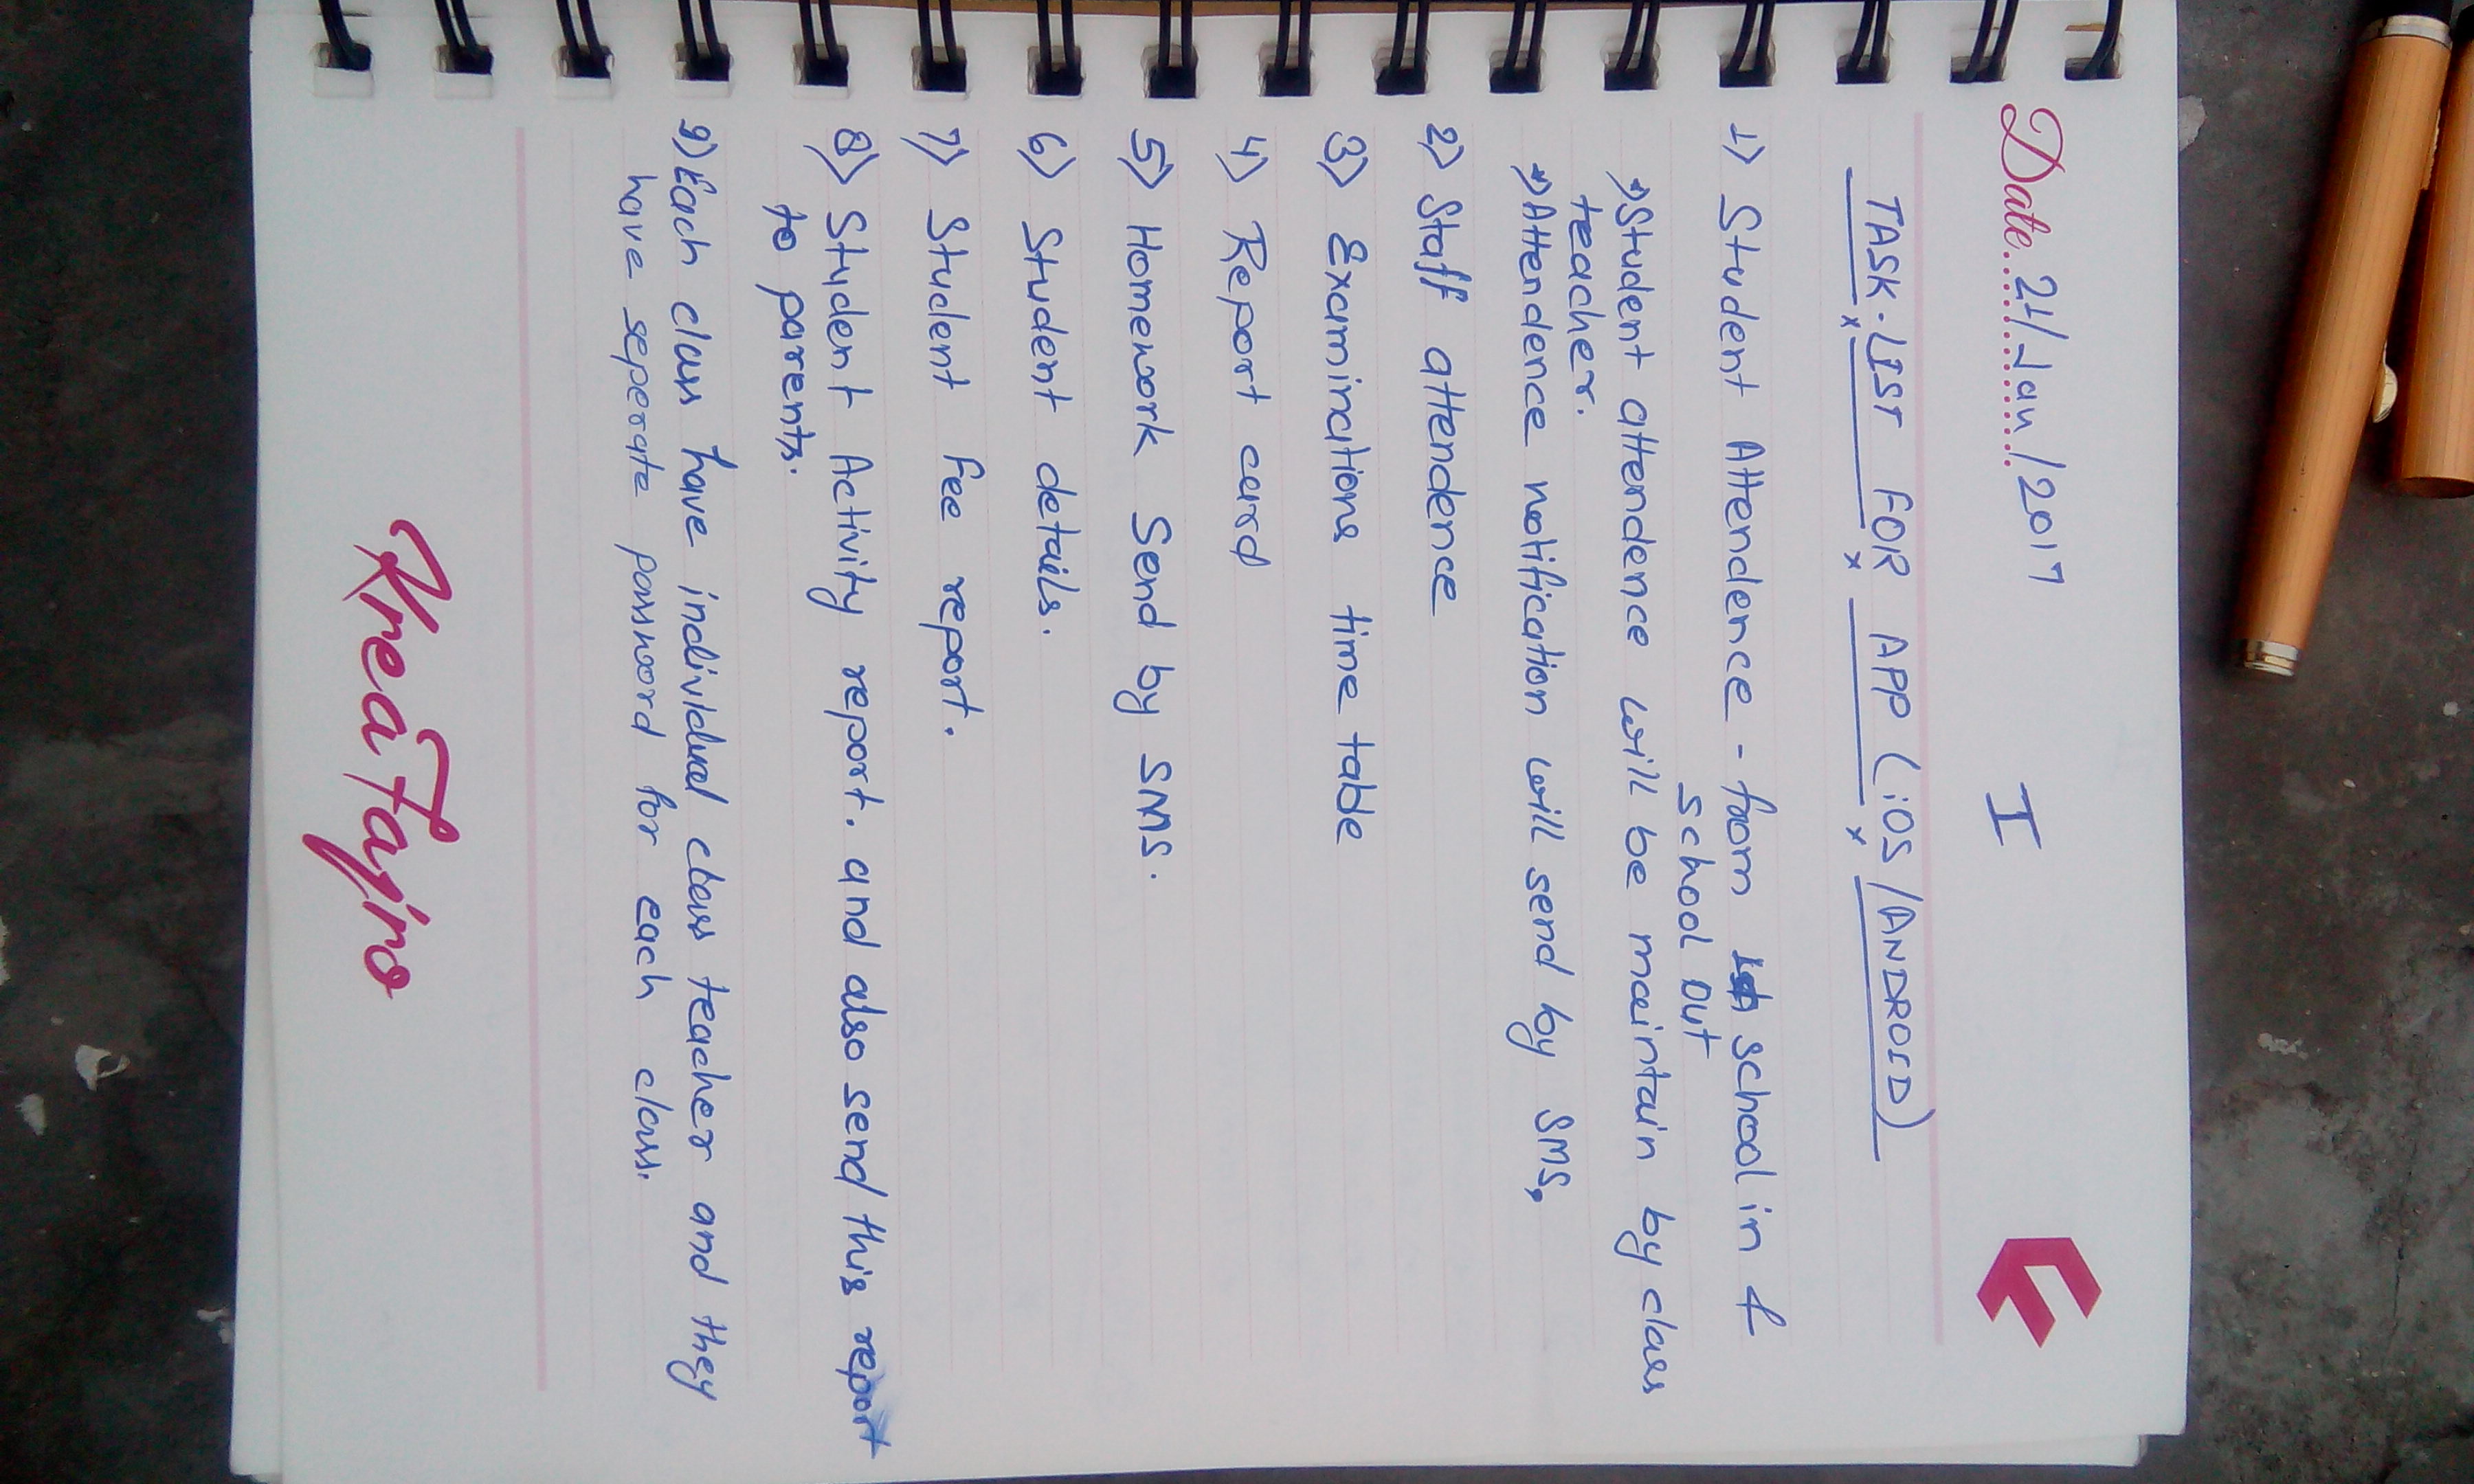 Date 21/Jan/2017
I
TASK-LIST FOR APP (iOS/ANDROID)
1) Student Attendence - from school in &
school out
Student attendence will be maintain by class
teacher.
Attendence notification will send by SMS.
2) Staff attendence
3) Examinations time table
4) Report card
5) Homework Send by SMS.
6) Student details.
7) Student Fee report.
8) Student Activity report. and also send this report
to parents.
9) Each class have individual class teacher and they
have seperate password for each class.
KreaFajro